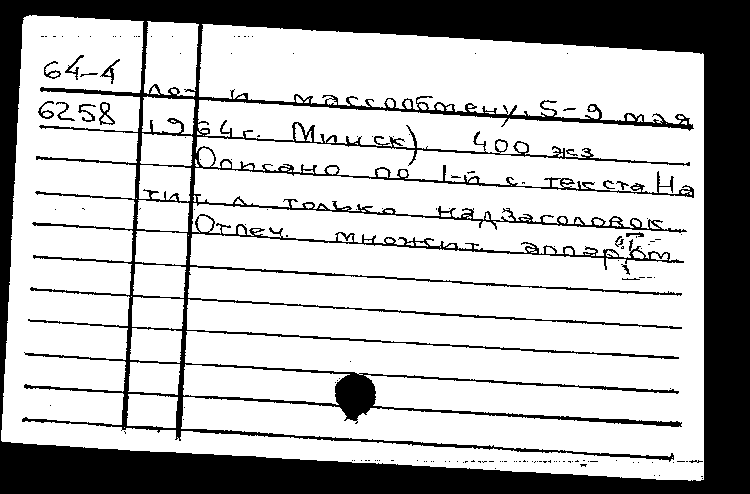 64-4
ло- и массообмену, 5-9 мая
6258 1964г. Минск) 400 экз
Описано по 1-й с. текста На
тит. л. только надзаголовок.
Отпеч. множит. аппаратом